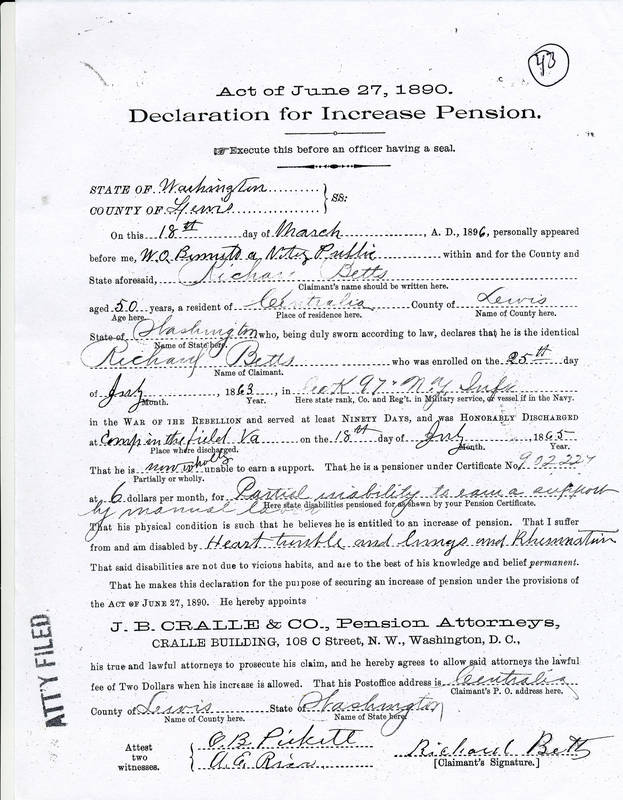 43
Act of June 27, 1890.
Declaration for Increase Pension.
☞Execute this before an officer having a seal.
STATE OF Washington
COUNTY OF Lewis } SS:
On this 18th day of March, A. D., 1896, personally appeared
before me, W. O. a Notry Public within and for the County and
State aforesaid, Richard Betts
Claimant's name should be written here.
aged 50 years, a resident of Centralia County of Lewis
Age here. Place of residence here. Name of County here.
State of Washington who, being duly sworn according to law, declares that he is the identical
Name of State here.
Richard Betts who was enrolled on the 25th day
Name of Claimant.
of July, 1863, in Co K 97" N.Y. Infy
Month. Year. Here state rank, Co. and Reg't. in Military service, or vessel if in the Navy.
in the WAR OF THE REBELLION and served at least NINETY DAYS, and was HONORABLY DISCHARGED
at Camp in the field Va on the 18th day of July 1865
Place where discharged. Month. Year.
That he is now wholly unable to earn a support. That he is a pensioner under Certificate No. 902.227
Partially or wholly.
at 6 dollars per month, for Partial inability to earn a support
Here state disabilities pensioned for as shown by your Pension Certificate.
by manual labor
That his physical condition is such that he believes he is entitled to an increase of pension. That I suffer
from and am disabled by Heart trouble and lungs and Rheumatism
That said disabilities are not due to vicious habits, and are to the best of his knowledge and belief permanent.
That he makes this declaration for the purpose of securing an increase of pension under the provisions of
the ACT OF JUNE 27, 1890. He hereby appoints
J. B. CRALLE & CO., Pension Attorneys,
CRALLE BUILDING, 108 C Street, N. W., Washington, D. C.,
his true and lawful attorneys to prosecute his claim, and he hereby agrees to allow said attorneys the lawful
fee of Two Dollars when his increase is allowed. That his Postoffice address is Centralia
Claimant's P. O. address here.
County of Lewis State of Washington
Name of County here. Name of State here.
Attest two witnesses. { C. B. Pickett
A. G. Rice
Richard Betts
[Claimant's Signature.]
ATT'Y FILED.